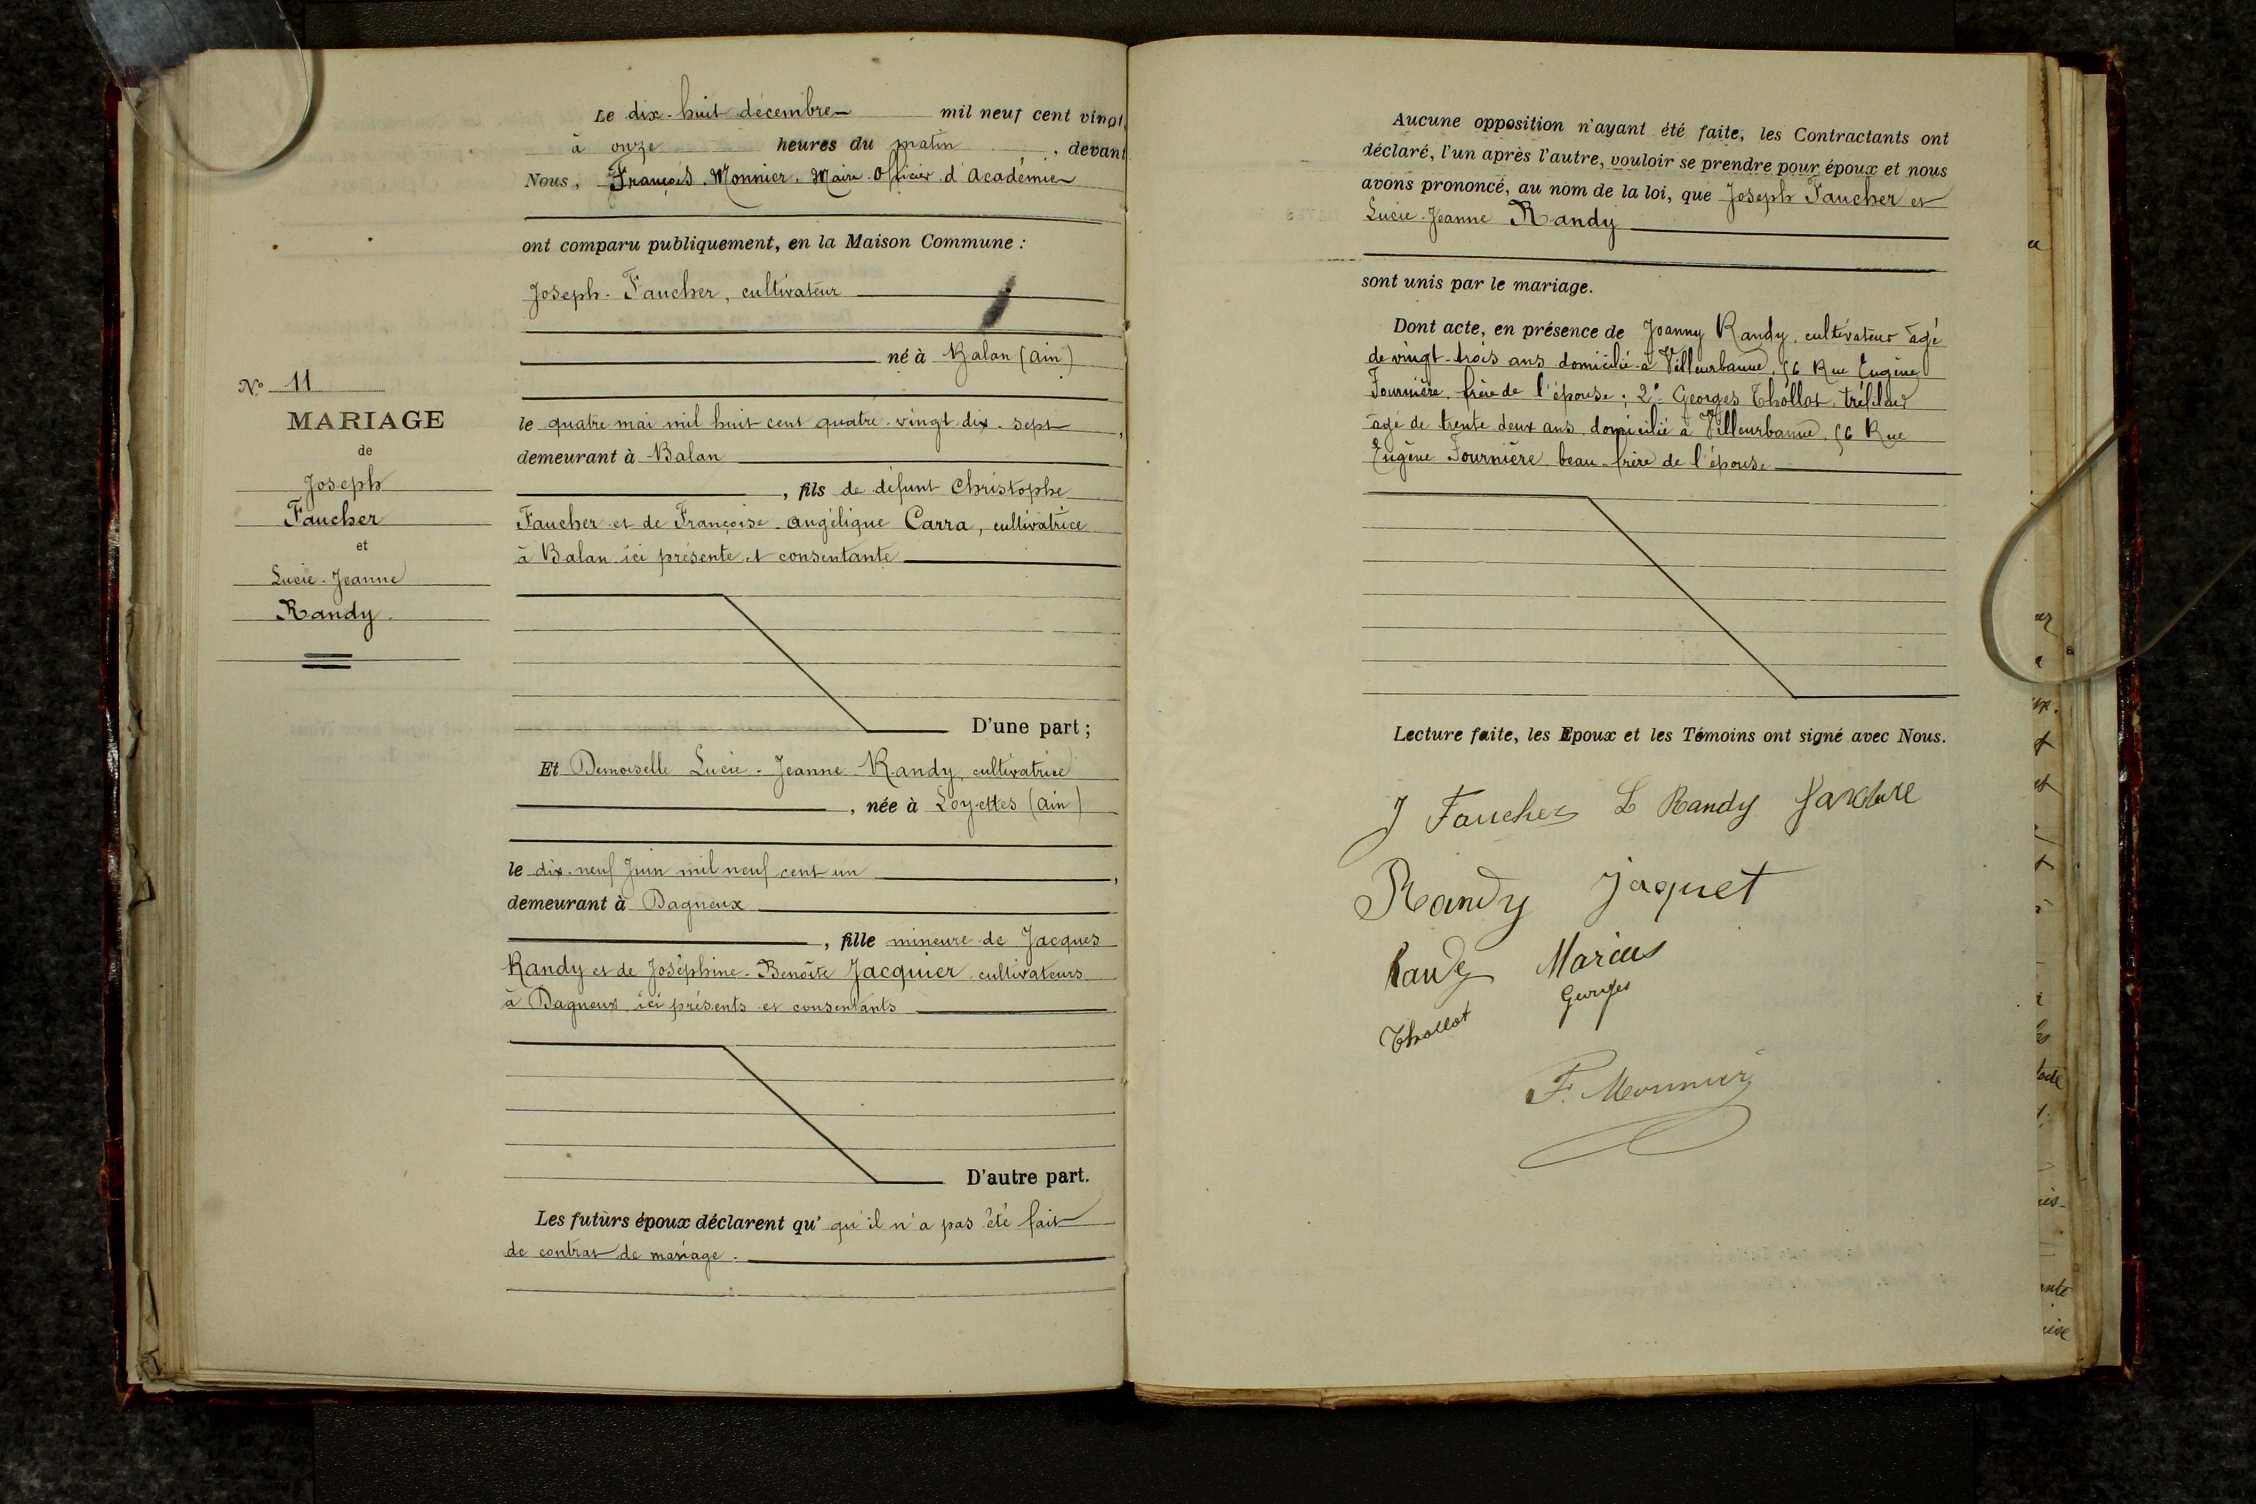 Le dix-huit décembre mil neuf cent vingt,
à onze heures du matin, devant
Nous, François Monnier, Maire Officier d'Académie
ont comparu publiquement, en la Maison Commune :
Joseph Faucher, cultivateur
né à Balan (Ain)
le quatre mai mil huit cent quatre-vingt-dix-sept,
demeurant à Balan
, fils de défunt Christophe
Faucher et de Françoise-Angélique Carra, cultivatrice
à Balan ici présente et consentante
D'une part ;
Et Demoiselle Lucie-Jeanne Randy, cultivatrice
, née à Loyettes (Ain)
le dix-neuf Juin mil neuf cent un,
demeurant à Dagneux
, fille mineure de Jacques
Randy et de Joséphine-Benoîte Jacquier, cultivateurs
à Dagneux, ici présents et consentants
D'autre part.
Les futurs époux déclarent qu' qu'il n'a pas été fait
de contrat de mariage.
N° 11
MARIAGE
de
Joseph
Faucher
et
Lucie-Jeanne
Randy
Aucune opposition n'ayant été faite, les Contractants ont
déclaré, l'un après l'autre, vouloir se prendre pour époux et nous
avons prononcé, au nom de la loi, que Joseph Faucher et
Lucie-Jeanne Randy
sont unis par le mariage.
Dont acte, en présence de Joanny Randy, cultivateur âgé
de vingt-trois ans domicilié à Villeurbanne, 56 Rue Eugène
Fournière, frère de l'épouse ; 2° Georges Thollot, tréfileur
âgé de trente deux ans domicilié à Villeurbanne, 56 Rue
Eugène Fournière beau-frère de l'épouse
Lecture faite, les Epoux et les Témoins ont signé avec Nous.
J Faucher L Randy
Randy Jaquet
Randy Marius
Thollot Georges
F. Monnier